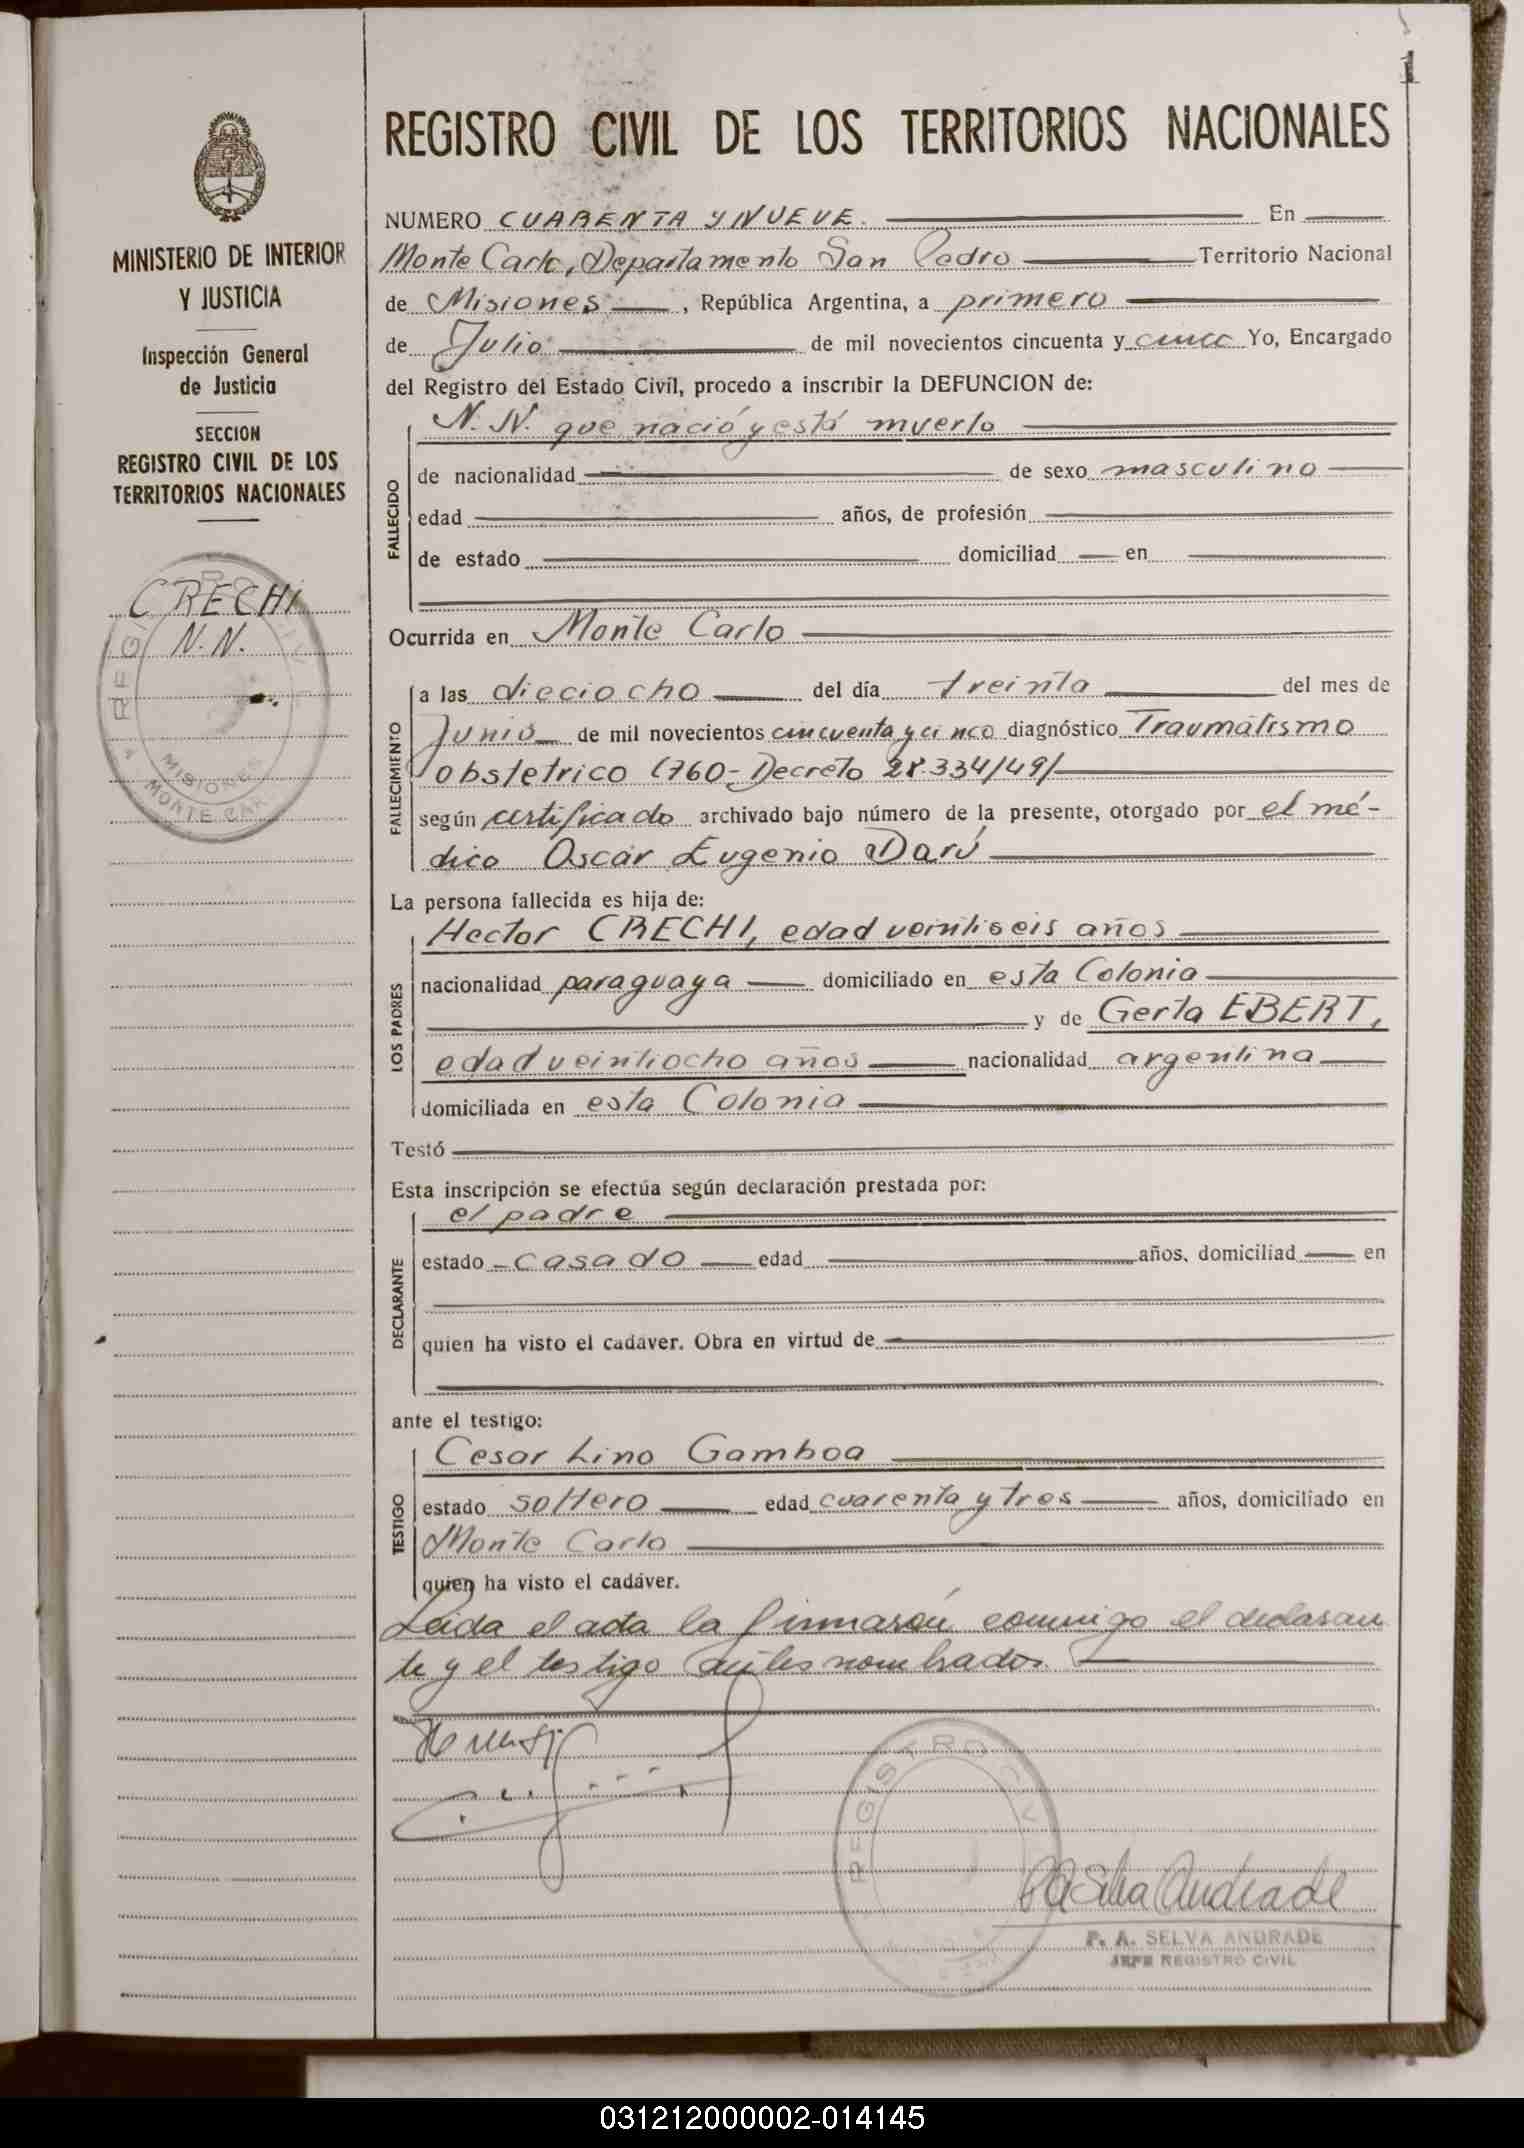 1
REGISTRO CIVIL DE LOS TERRITORIOS NACIONALES
MINISTERIO DE INTERIOR
Y JUSTICIA
Inspección General
de Justicia
SECCION
REGISTRO CIVIL DE LOS
TERRITORIOS NACIONALES
CRECHI
N. N.
REGISTRO CIVIL
MISIONES
MONTE CARLO
NUMERO CUARENTA Y NUEVE. En
Monte Carlo, Departamento San Pedro Territorio Nacional
de Misiones , República Argentina, a primero
de Julio de mil novecientos cincuenta y cinco Yo, Encargado
del Registro del Estado Civil, procedo a inscribir la DEFUNCION de:
FALLECIDO
N. N. que nació y está muerto
de nacionalidad de sexo masculino
edad años, de profesión
de estado domiciliad en
Ocurrida en Monte Carlo
FALLECIMIENTO
a las dieciocho del día treinta del mes de
Junio de mil novecientos cincuenta y cinco diagnóstico Traumatismo
obstetrico (760-Decreto 28.334/49/
según certificado archivado bajo número de la presente, otorgado por el mé-
dico Oscar Eugenio Darú
La persona fallecida es hija de:
LOS PADRES
Hector CRECHI, edad veintiseis años
nacionalidad paraguaya domiciliado en esta Colonia
y de Gerta EBERT,
edad veintiocho años nacionalidad argentina
domiciliada en esta Colonia
Testó
Esta inscripción se efectúa según declaración prestada por:
DECLARANTE
el padre
estado casado edad años, domiciliad en
quien ha visto el cadáver. Obra en virtud de
ante el testigo:
TESTIGO
Cesar Lino Gamboa
estado soltero edad cuarenta y tres años, domiciliado en
Monte Carlo
quien ha visto el cadáver.
Leida el acta la firmaron conmigo el declaran
te y el testigo antes nombrados.
REGISTRO CIVIL
PASelva Andrade
P. A. SELVA ANDRADE
JEFE REGISTRO CIVIL
031212000002-014145